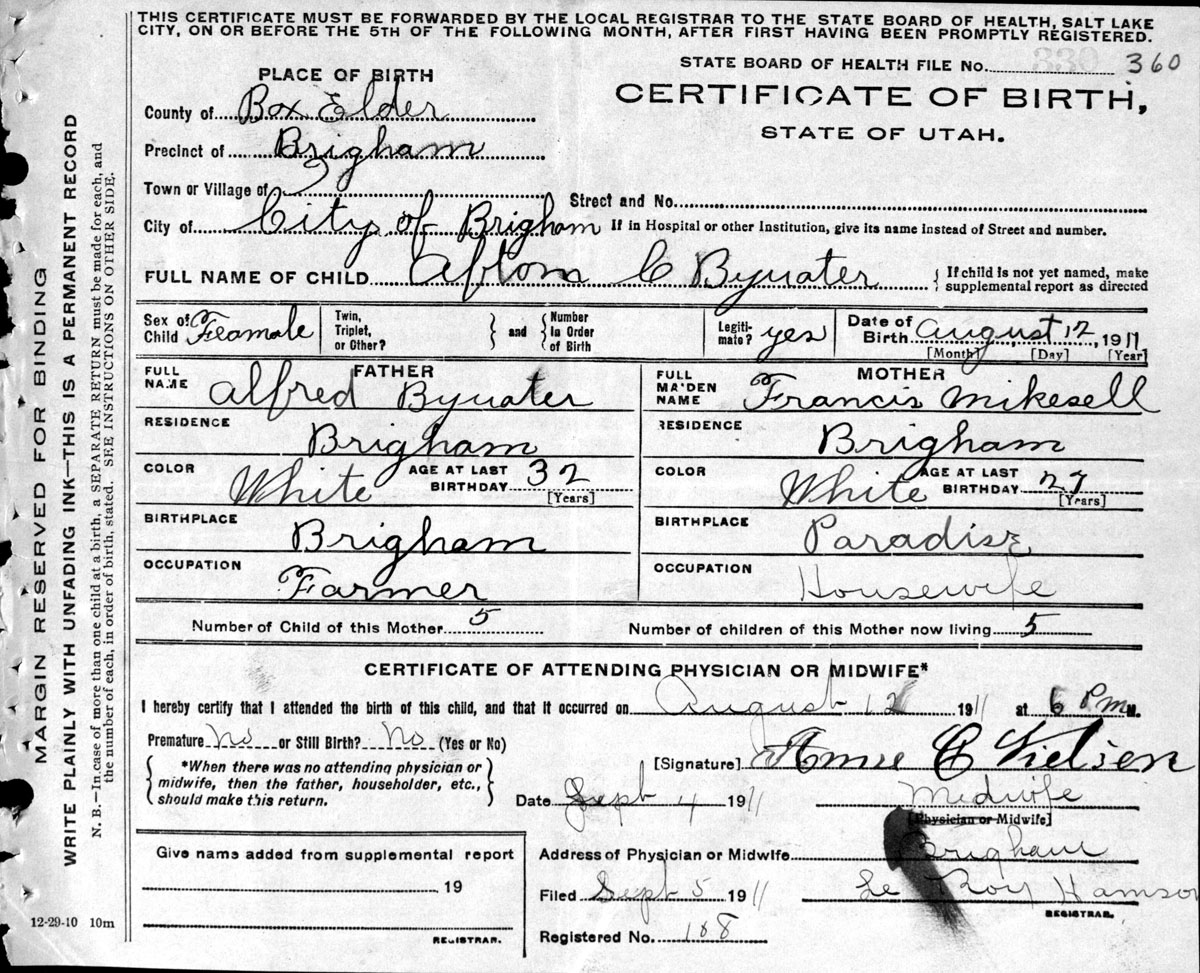 THIS CERTIFICATE MUST BE FORWARDED BY THE LOCAL REGISTRAR TO THE STATE BOARD OF HEALTH, SALT LAKE
CITY, ON OR BEFORE THE 5TH OF THE FOLLOWING MONTH, AFTER FIRST HAVING BEEN PROMPTLY REGISTERED.
STATE BOARD OF HEALTH FILE No. 330 360
PLACE OF BIRTH
CERTIFICATE OF BIRTH,
STATE OF UTAH.
County of Box Elder
Precinct of Brigham
Town or Village of
Street and No.
City of City of Brigham If in Hospital or other Institution, give its name instead of Street and number.
FULL NAME OF CHILD Afton C Bywater { If child is not yet named, make
supplemental report as directed
Sex of Child Feamale Twin, Triplet, or Other? } and { Number in Order of Birth Legiti-mate? yes Date of Birth August, 12, 1911
[Month] [Day] [Year]
FATHER
MOTHER
FULL NAME Alfred Bywater
FULL MAIDEN NAME Francis Mikesell
RESIDENCE Brigham
RESIDENCE Brigham
COLOR White AGE AT LAST BIRTHDAY 32 [Years]
COLOR White AGE AT LAST BIRTHDAY 27 [Years]
BIRTHPLACE Brigham
BIRTHPLACE Paradise
OCCUPATION Farmer
OCCUPATION Housewife
Number of Child of this Mother 5 Number of children of this Mother now living 5
CERTIFICATE OF ATTENDING PHYSICIAN OR MIDWIFE*
I hereby certify that I attended the birth of this child, and that it occurred on August 12 1911 at 6 Pm M.
Premature No or Still Birth? No (Yes or No)
[Signature] Annie C Nielsen
{ *When there was no attending physician or
midwife, then the father, householder, etc.,
should make this return. }
Date Sept 4 1911 Midwife
[Physician or Midwife]
Give name added from supplemental report
19
REGISTRAR.
Address of Physician or Midwife Brigham
Filed Sept 5 1911 Le Roy Hamson
REGISTRAR.
Registered No. 188
MARGIN RESERVED FOR BINDING
WRITE PLAINLY WITH UNFADING INK—THIS IS A PERMANENT RECORD
N. B.—In case of more than one child at a birth, a SEPARATE RETURN must be made for each, and
the number of each, in order of birth, stated. SEE INSTRUCTIONS ON OTHER SIDE.
12-29-10 10m